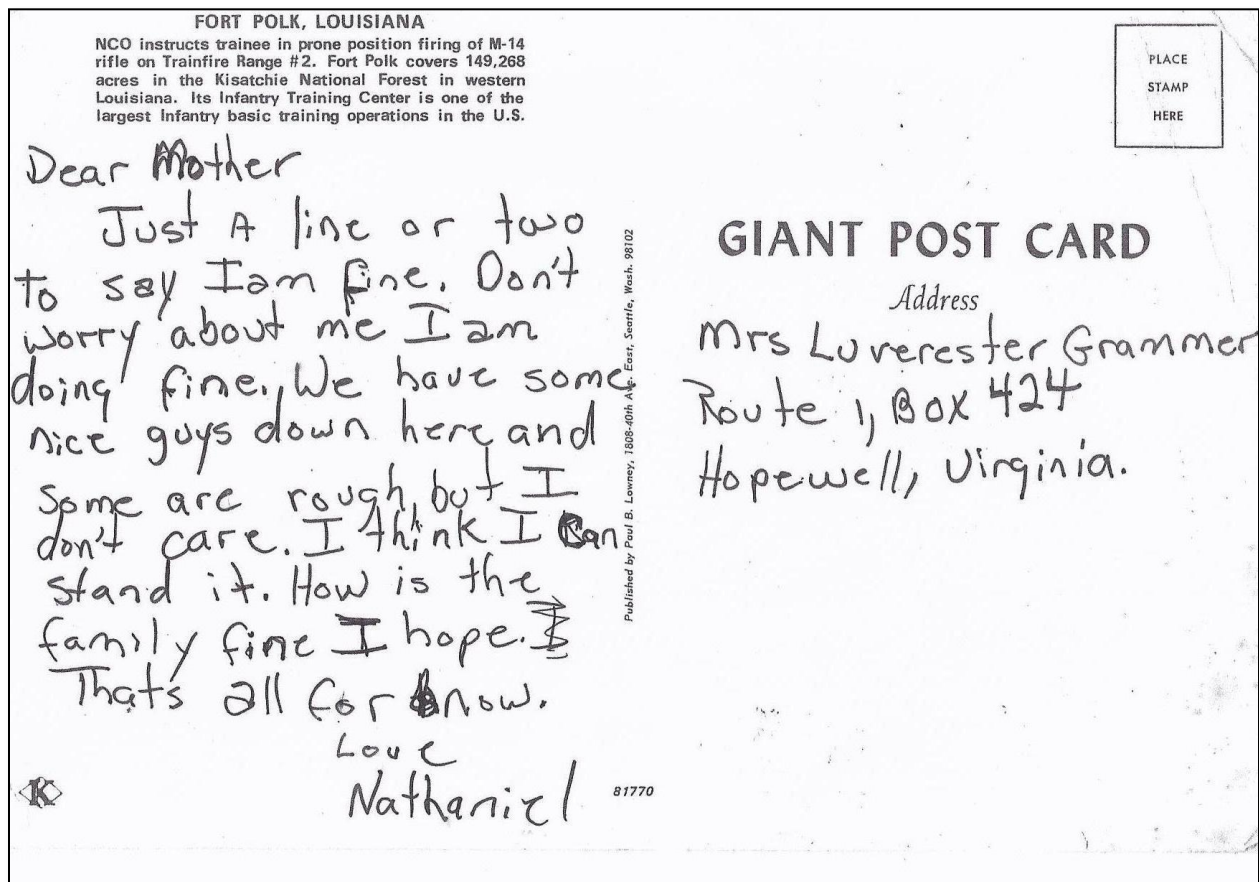 FORT POLK, LOUISIANA
NCO instructs trainee in prone position firing of M-14
rifle on Trainfire Range #2. Fort Polk covers 149,268
acres in the Kisatchie National Forest in western
Louisiana. Its Infantry Training Center is one of the
largest Infantry basic training operations in the U.S.
Dear Mother
Just A line or two
to say I am fine. Don't
worry about me I am
doing fine. We have some
nice guys down here and
some are rough, but I
don't care. I think I Can
stand it. How is the
family fine I hope.
Thats all for now.
Love
Nathaniel
K
81770
Published by Paul B. Lowney, 1808-40th Ave. East, Seattle, Wash. 98102
PLACE
STAMP
HERE
GIANT POST CARD
Address
Mrs Luverester Grammer
Route 1, Box 424
Hopewell, Virginia.